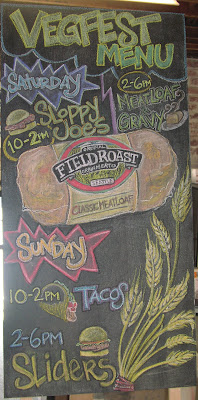 VEGFEST
MENU
SATURDAY
SLOPPY
JOES
10-2PM
2-6PM
MEATLOAF
GRAVY
FIELD ROAST
GRAIN MEAT CO.
SEATTLE
CLASSIC MEATLOAF
SUNDAY
10-2PM TACOS
2-6PM
SLIDERS